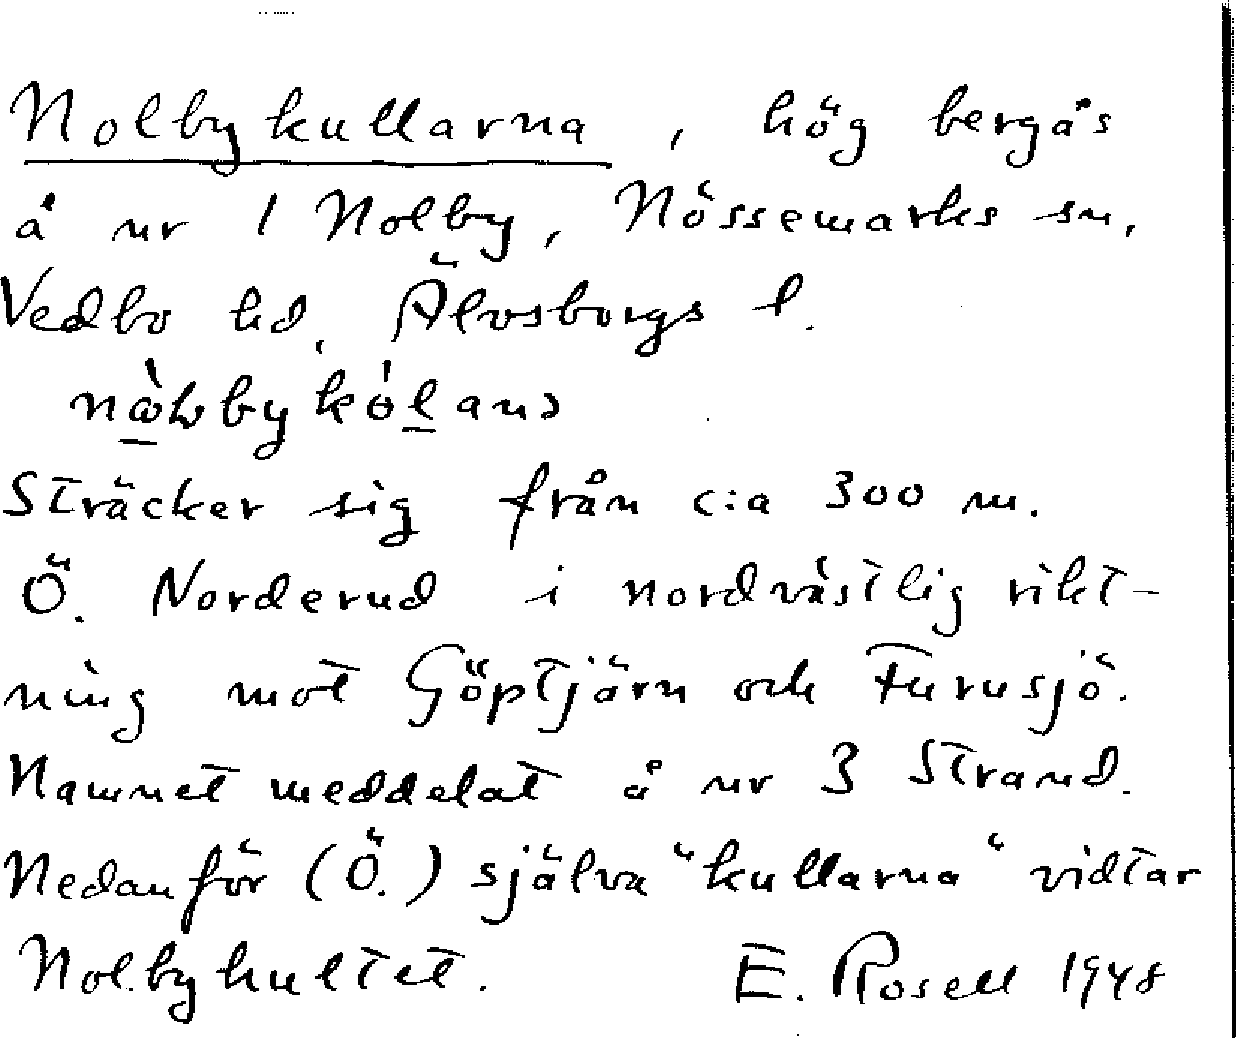 Nolbykullarna, hög bergås
å nr 1 Nolby, Nössemarks sn,
Vedbo hd, Älvsborgs l.
Sträcker sig från c:a 300 m.
Ö. Norderud i nordvästlig rikt-
ning mot Göptjärn och Furusjö.
Namnet meddelat å nr 3 Strand.
Nedanför (Ö.) själva "kullarna" vidtar
Nolbyhultet. E. Rosell 1948